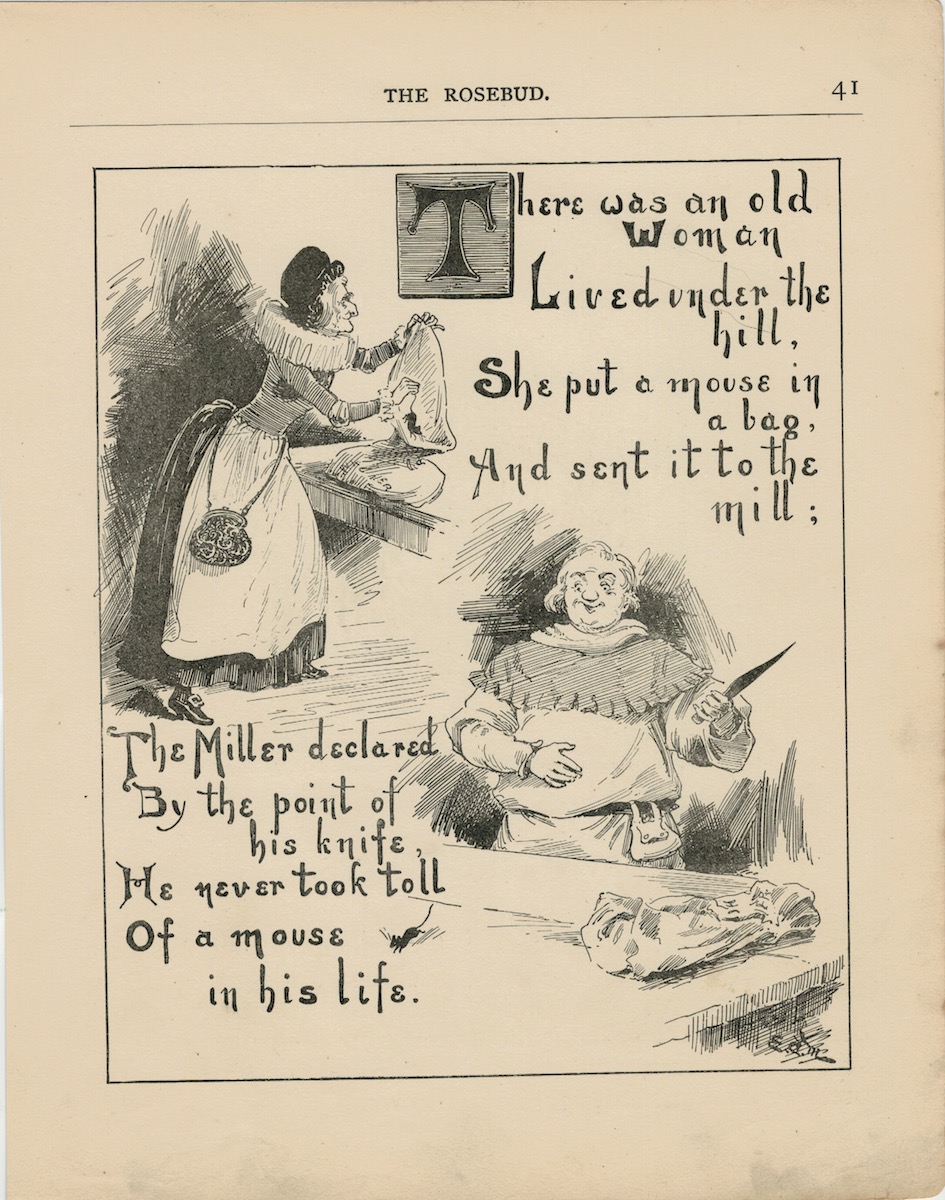 THE ROSEBUD.
41
There was an old
Woman
Lived under the
hill,
She put a mouse in
a bag,
And sent it to the
mill;
The Miller declared
By the point of
his knife,
He never took toll
Of a mouse
in his life.